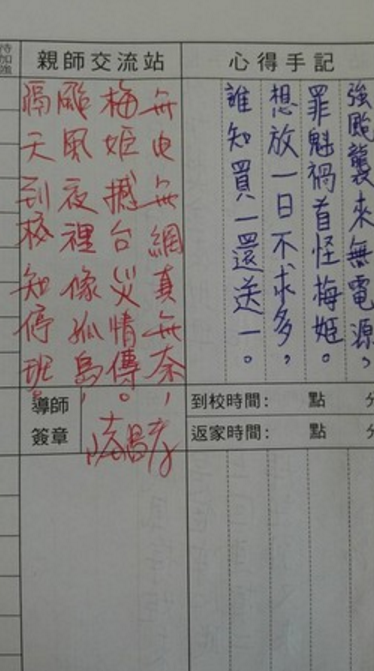 心得手記
強颱襲來無電源，
罪魁禍首怪梅姬。
想放一日不求多，
誰知買一還送一。
親師交流站
無電無網真無奈，
梅姬撼台災情傳。
颱風夜裡像孤島，
隔天到校知停班。
待加強
到校時間： 點 分
返家時間： 點 分
導師
簽章